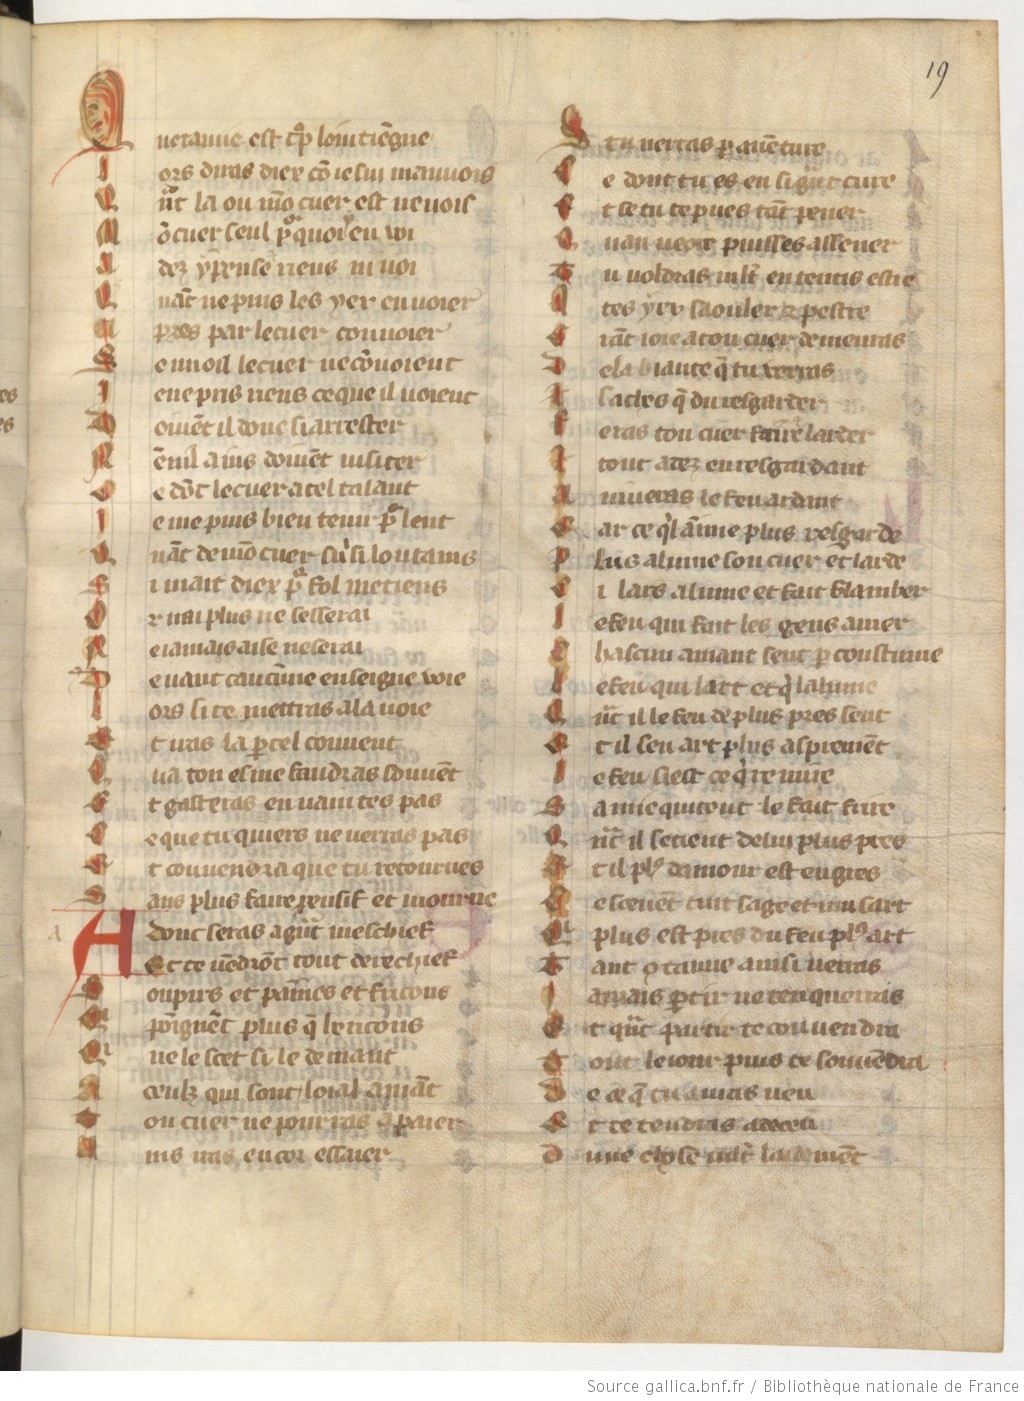 19
Quetamie est tp̄ lointiegne
Lors diras diex cō ie sui mauuois
Quāt la ou mō cuer est ne vois
Mō cuer seul pͣquoi ien voi
Adez y pense riens ni voi
Quāt ne puis les yex enuoier
Apres par le cuer conuoier
Se mi oil le cuer ne cōuoient
Ie ne pris riens ce que il voient
Doiuēt il donc si arrester
Nēnil ains doiuēt uisiter
Ce dōt le cuer a tel talant
Ie me puis bien tenir pͣ lent
Quāt de mō cuer sui si lointains
Si mait diex pͣ fol me tiens
Or irai plus ne lesserai
Ie iamais aise ne serai
Deuant caucūne enseigne voie
Lors si te mettras a la voie
Et iras la par tel couuent
Qua ton esme faudras souuēt
Et gasteras en vain tes pas
Ce que tu quiers ne verras pas
Et conuendra que tu retournes
Sans plus faire pensif et mourne
Adonc seras a grāt meschief
Et te uēdrōt tout derechief
Soupirs et plaintes et fricons
Qui poignēt plus q̄ hericōns
Qui ne le scet si le demant
A ceulz qui sont loial amāt
Ton cuer ne pourras apaier
Ains iras encor essaier
Se tu verras par auēture
Ce dont tu es en si grāt cure
Et se tu te pues tāt pener
Quau veoir puisses assener
Tu voldras mlt̄ ententis estre
A tes yex saouler et pestre
Grāt ioie a ton cuer demenras
De la biaute q̄ tu verras
Et saches q̄ du resgarder
Feras ton cuer frire et larder
Et tout adez en resgardant
Auiueras le feu ardant
Car ce q̄l aīme plus resgarde
Plus alume son cuer et larde
Cilz lars alume et fait flamber
Le feu qui fait les gens amer
Chascun amant sent par coustume
Le feu qui lart et q̄ lalume
Quāt il le feu de plus pres sent
Et il sen art plus asprement
Le feu si est ce q̄ remire
Samie qui tout le fait frire
Quāt il se tient de lui plus pres
Et il plꝰ damour est engres
Ce sceuent tuit sage et musart
Qui plus est pres du feu plꝰ art
Tant q̄ tamie ainsi verras
Iamais partir ne ten querras
Et quāt partir te conuendra
Tout le iour puis te souuēdra
De ce q̄ tu auras veu
Et te tendras a deceu
Dune chose mlt̄ laidemēt